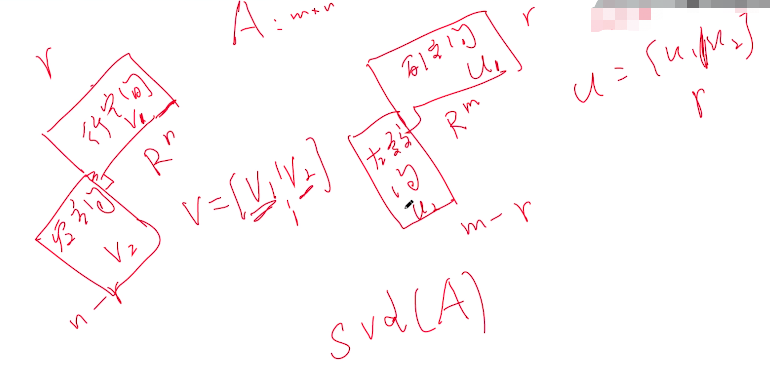 A : m × n
r
行空间
V₁
Rⁿ
零空间
V₂
n - r
V = [V₁ ¦ V₂]
r
列空间
U₁
Rᵐ
左零空间
U₂
m - r
U = [U₁ | U₂]
r
svd(A)